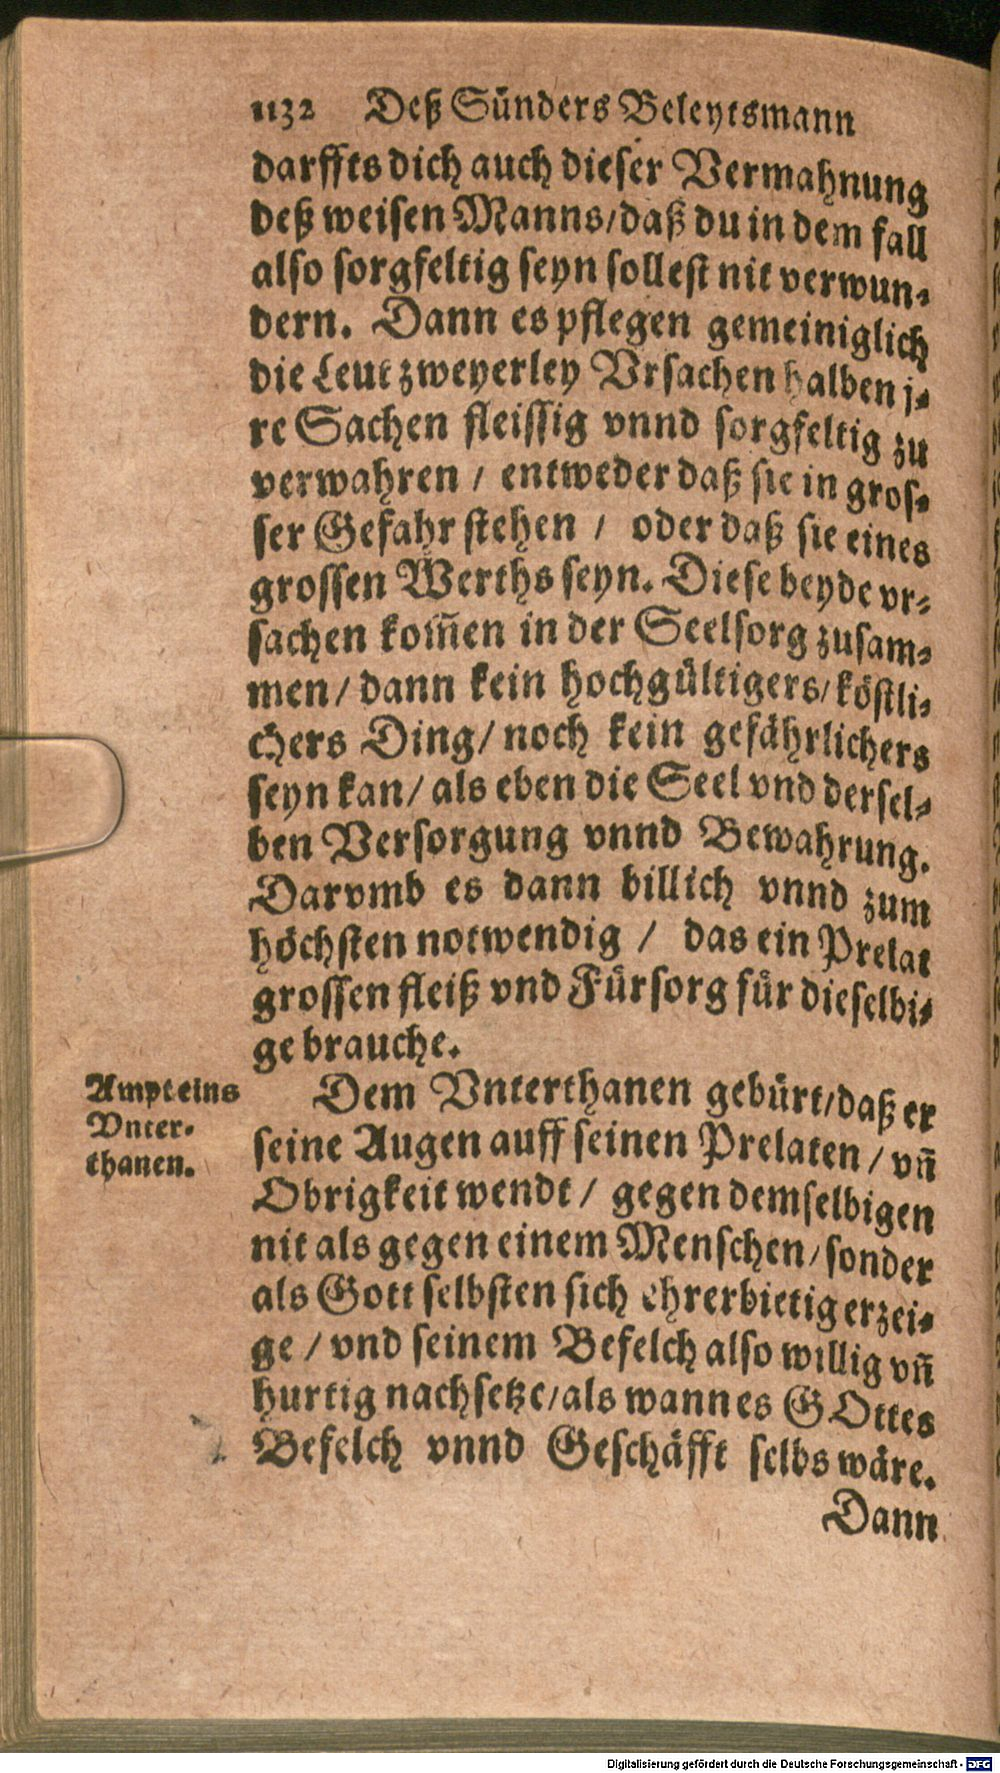 1132 Deß Sünders Beleytsmann
darffts dich auch dieser Vermahnung
deß weisen Manns/daß du in dem fall
also sorgfeltig seyn sollest nit verwun-
dern. Dann es pflegen gemeiniglich
die Leut zweyerley Vrsachen halben j-
re Sachen fleissig vnnd sorgfeltig zu
verwahren / entweder daß sie in gros-
ser Gefahr stehen / oder daß sie eines
grossen Werths seyn. Diese beyde vr-
sachen kom̃en in der Seelsorg zusam-
men/ dann kein hochgültigers/köstli-
chers Ding/ noch kein gefährlichers
seyn kan/ als eben die Seel vnd dersel-
ben Versorgung vnnd Bewahrung.
Darvmb es dann billich vnnd zum
höchsten notwendig / das ein Prelat
grossen fleiß vnd Fürsorg für dieselbi-
ge brauche.
Ampt eins
Vnter-
thanen.
Dem Vnterthanen gebürt/daß er
seine Augen auff seinen Prelaten / vn̄
Obrigkeit wendt / gegen demselbigen
nit als gegen einem Menschen/sonder
als Gott selbsten sich ehrerbietig erzei-
ge / vnd seinem Befelch also willig vn̄
hurtig nachsetze/als wann es GOttes
Befelch vnnd Geschäfft selbs wäre.
Dann
Digitalisierung gefördert durch die Deutsche Forschungsgemeinschaft - DFG